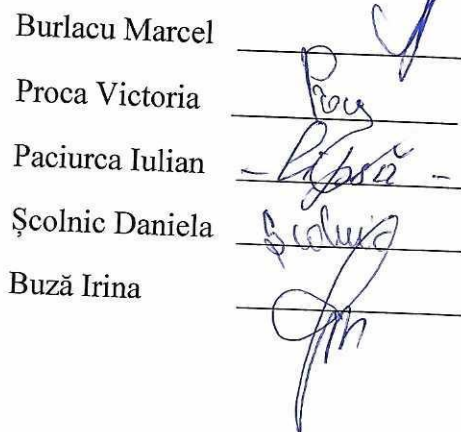 Burlacu Marcel
Proca Victoria
Paciurca Iulian - Lipsă -
Școlnic Daniela Școlnic
Buză Irina